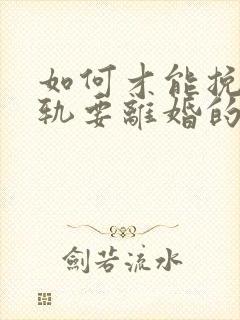 如何才能挽
轨要離婚的
劍若流水